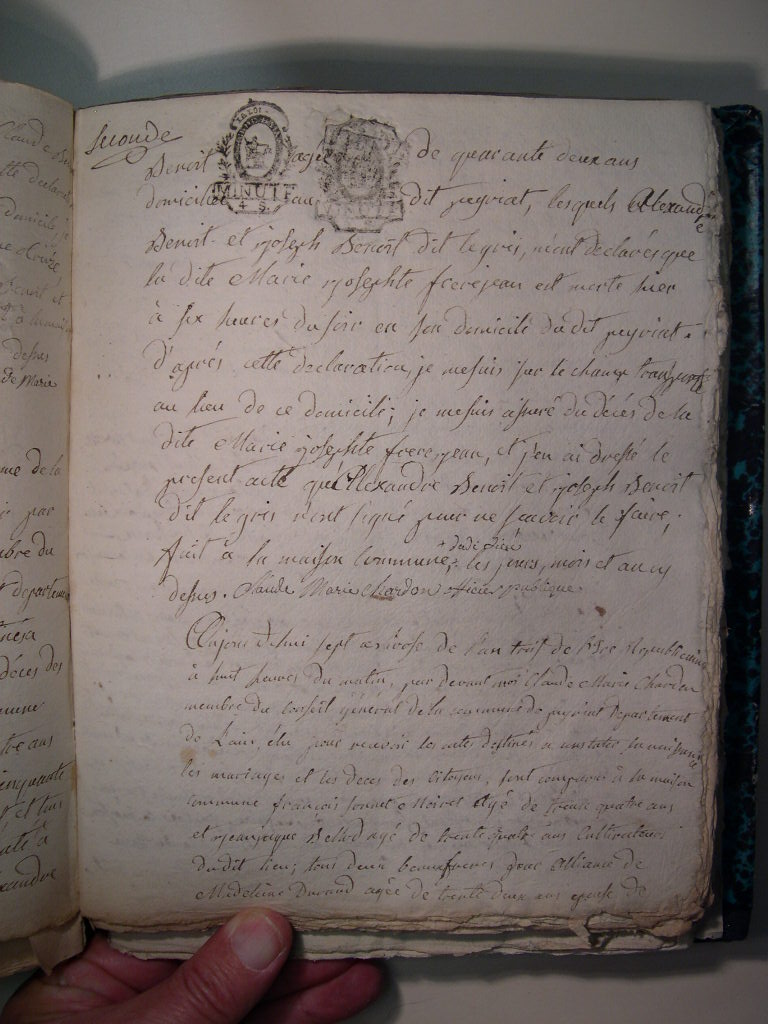 seconde
LA LOI
MINUTE
4 S.
Benoit agé de quarante deux ans
domicilié au dit peyriat, lesquels Alexandre
Benoit et joseph Benoit dit le gris, m'ont déclarés que
la dite Marie josephte frerejean est morte hier
à six heures du soir en son domicile du dit peyriat.
d'après cette declaration, je me suis sur le champ transporté
au lieu de ce domicile; je me suis assuré du décès de la
dite Marie josephte frerejean, et j'en ai dressé le
présent acte qu'Alexandre Benoit et joseph Benoit
dit le gris n'ont signé pour ne sçavoir le faire,
fait à la maison commune, les jours, mois et an cy
dessus. Claude Marie Chardon officier publique
Aujourd'hui sept de l'an trois de l'Ere Republicaine
à huit heures du matin, par devant moi Claude Marie Chardon
membre du conseil général de la commune de peyriat departement
de l'ain, élu pour recevoir les actes destinés a constater la naissance
les mariages et les deces des citoyens, sont comparus à la maison
commune françois Moiret agé de trente quatre ans
et jeanjacque agé de trente quatre ans Cultivateurs
dudit lieu; tous deux beauxfreres pour alliance de
Madeleine Durand agée de trente deux ans epouse de